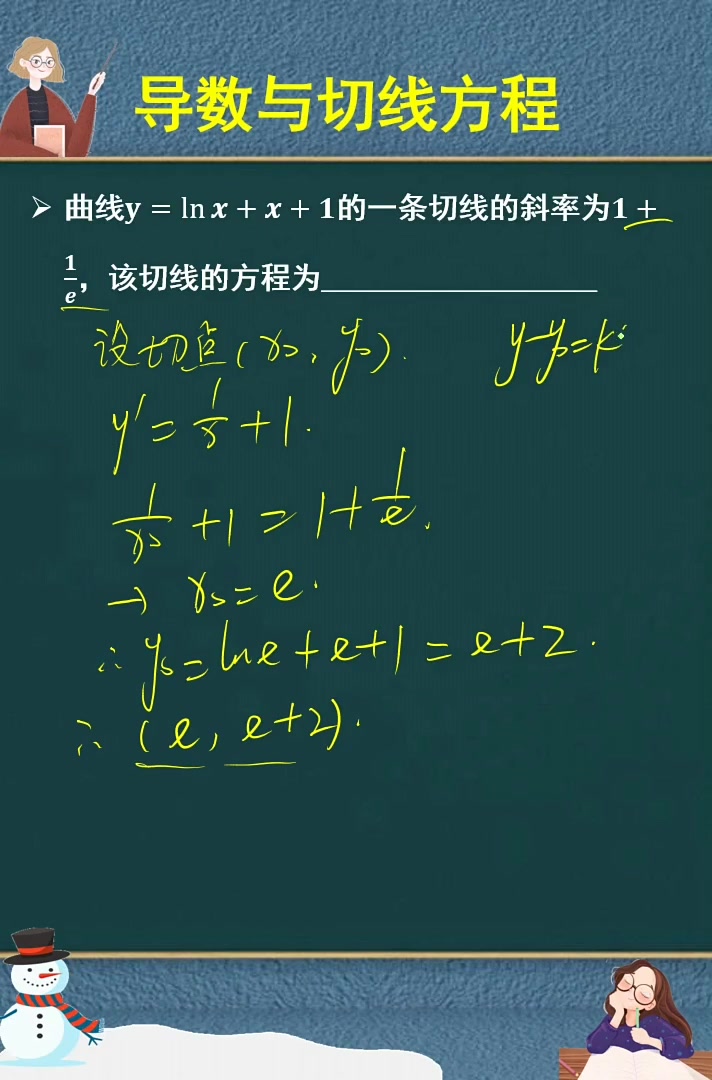 导数与切线方程
➢ 曲线y = ln x + x + 1的一条切线的斜率为1 +
1/e，该切线的方程为__________________
设切点(x₀, y₀). y-y₀=k
y' = 1/x + 1.
1/x₀ + 1 = 1 + 1/e.
→ x₀ = e.
∴ y₀ = lne + e + 1 = e + 2.
∴ (e, e+2).